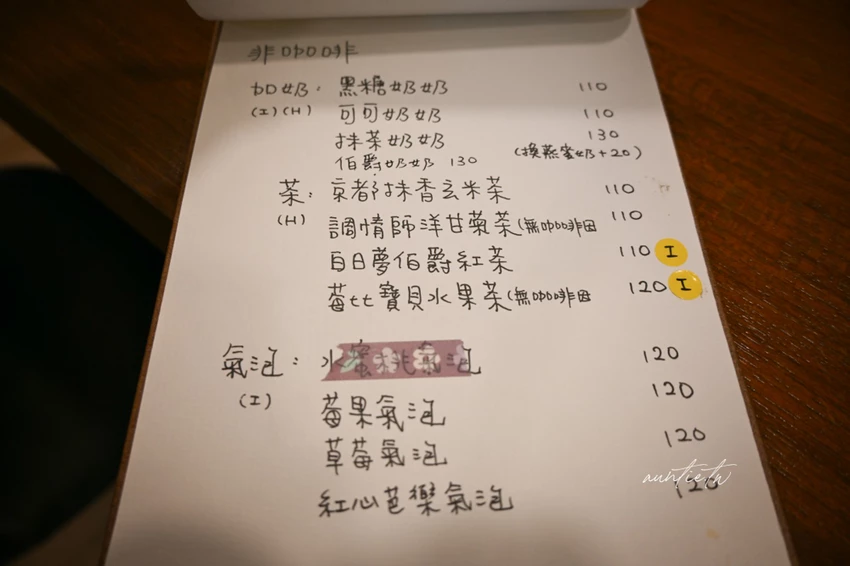 非咖啡
加奶: 黑糖奶奶 110
(I)(H) 可可奶奶 110
抹茶奶奶 130
(換燕麥奶+20)
伯爵奶奶 130
茶: 京都抹香玄米茶 110
(H) 調情師洋甘菊茶(無咖啡因 110
白日夢伯爵紅茶 110 I
莓tt寶貝水果茶(無咖啡因 120 I
氣泡: 水蜜桃氣泡 120
(I) 莓果氣泡 120
草莓氣泡 120
紅心芭樂氣泡 120
auntietw